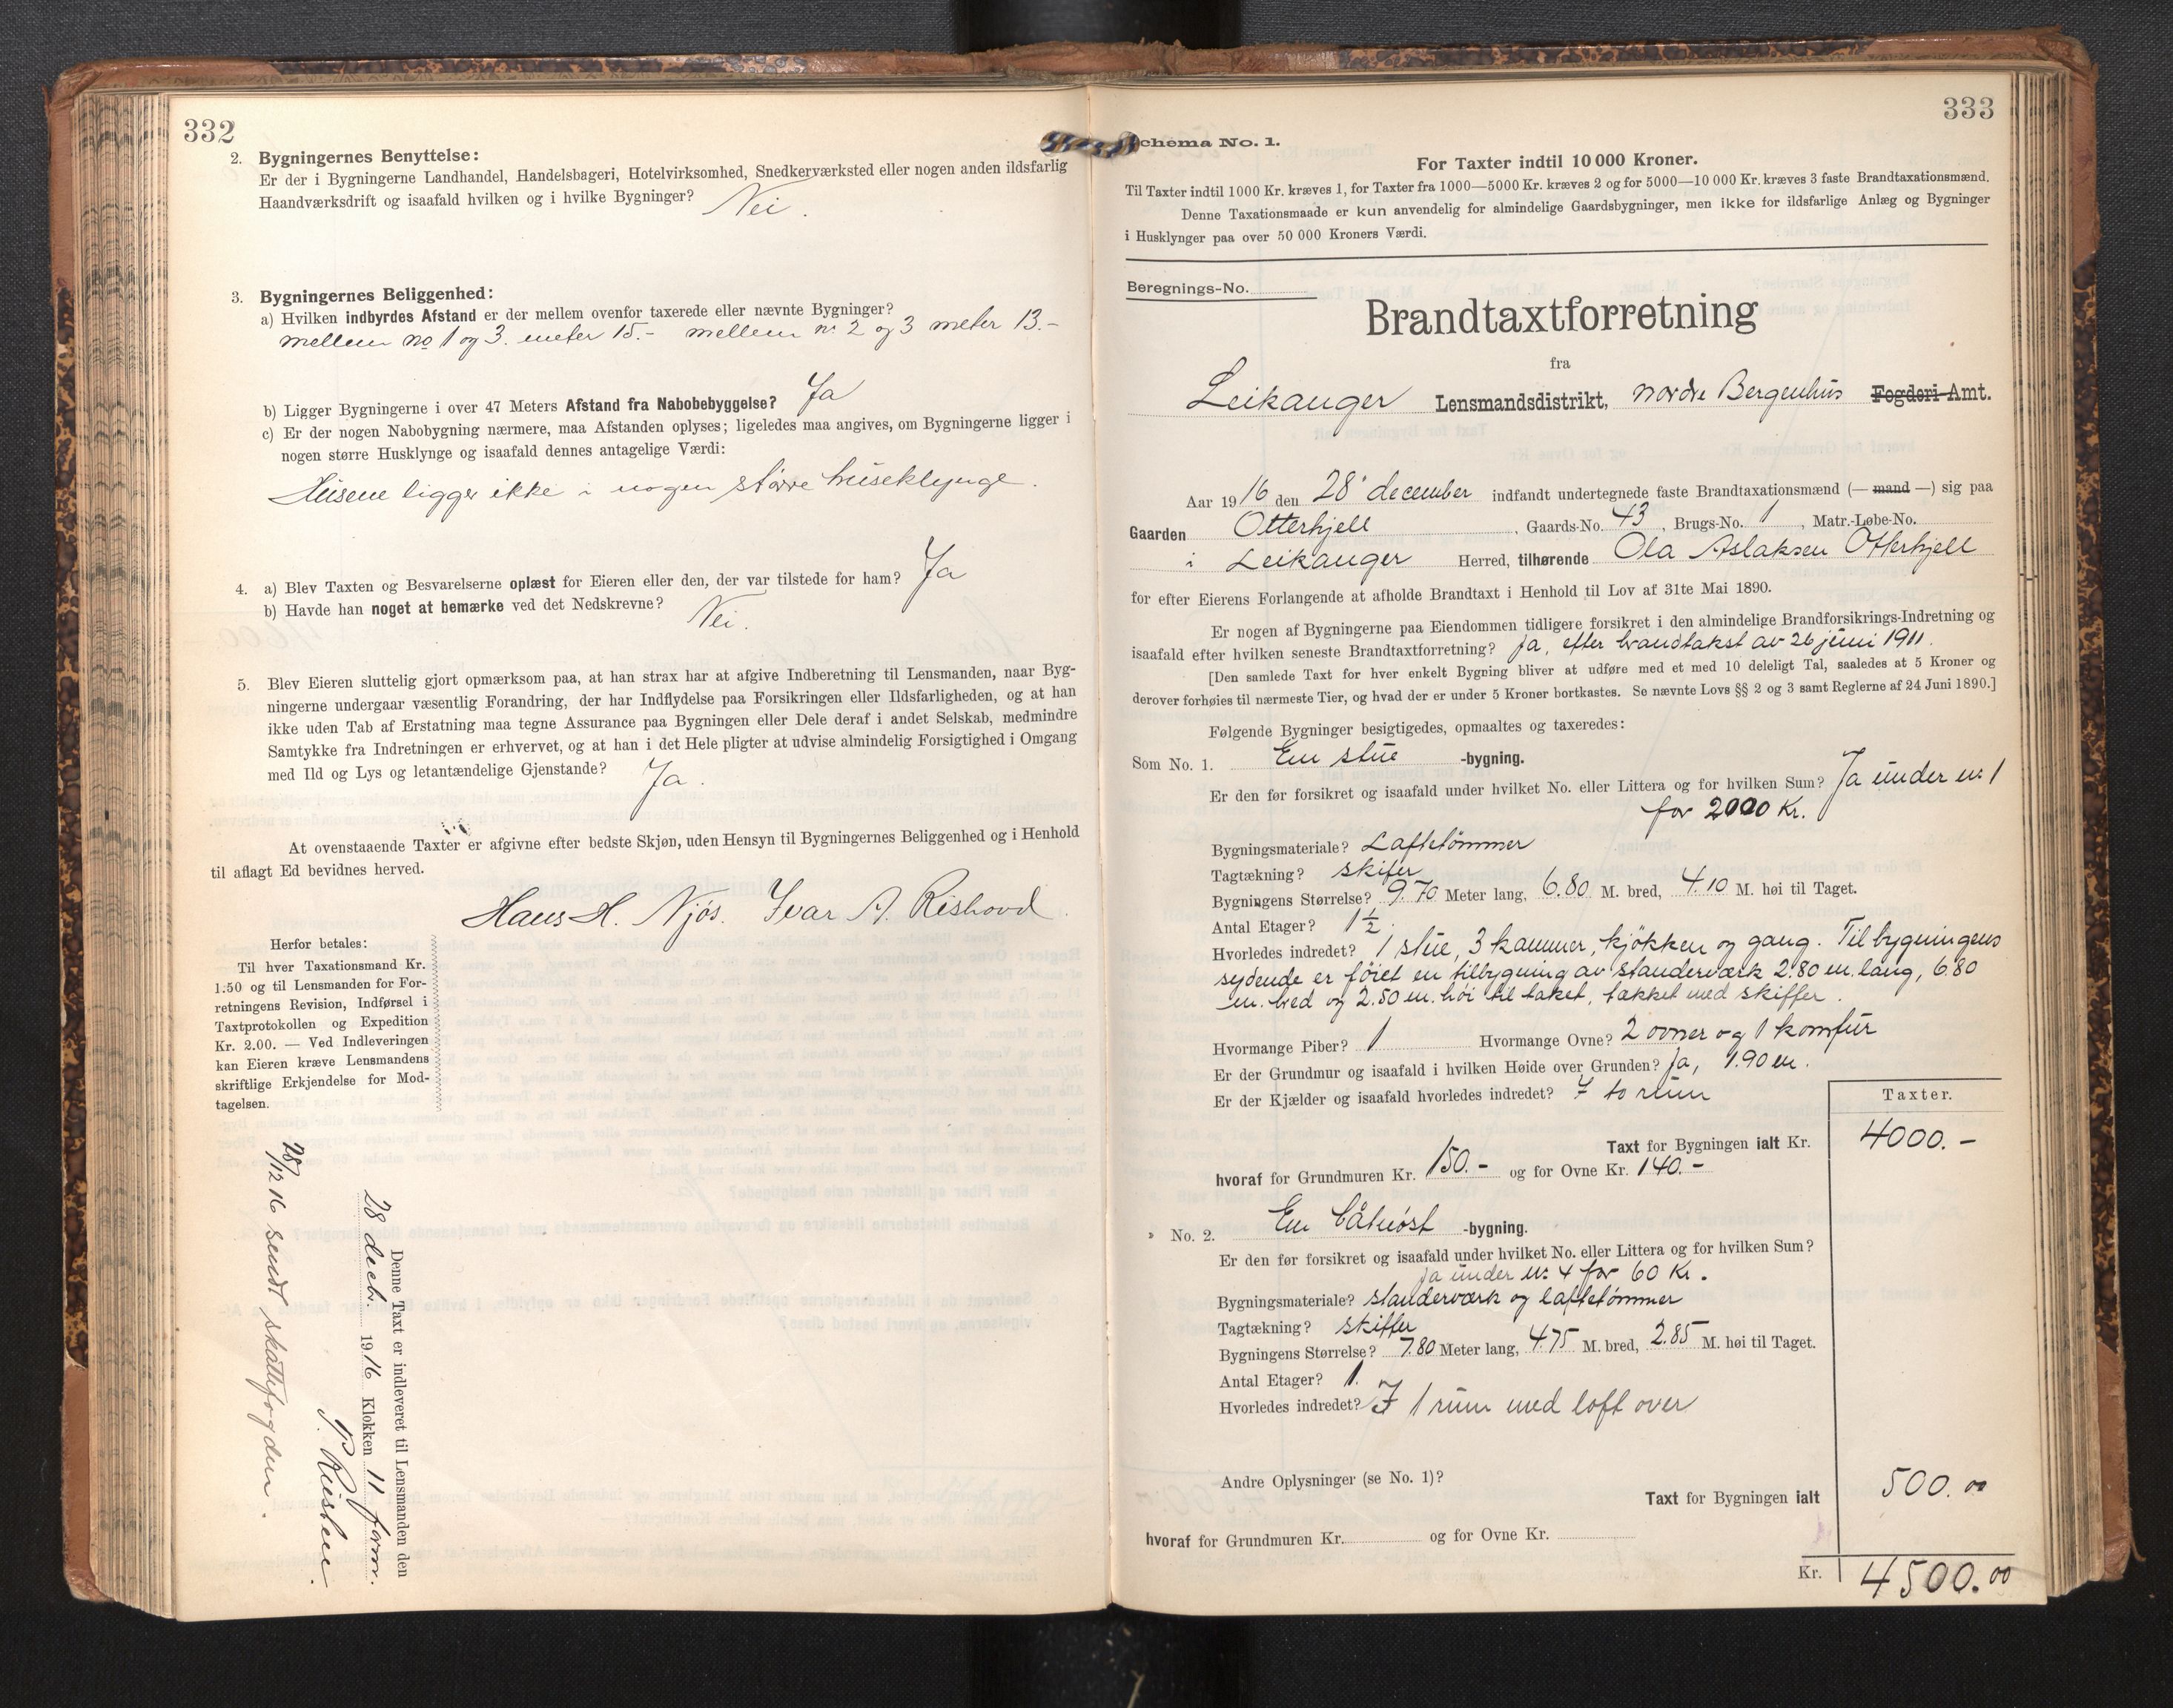 332
2. Bygningernes Benyttelse:
Er der i Bygningerne Landhandel, Handelsbageri, Hotelvirksomhed, Snedkerværksted eller nogen anden ildsfarlig
Haandværksdrift og isaafald hvilken og i hvilke Bygninger? Nei.
3. Bygningernes Beliggenhed:
a) Hvilken indbyrdes Afstand er der mellem ovenfor taxerede eller nævnte Bygninger?
mellem no 1 og 3. meter 15.- mellem nr. 2 og 3 meter 13.-
b) Ligger Bygningerne i over 47 Meters Afstand fra Nabobebyggelse? Ja
c) Er der nogen Nabobygning nærmere, maa Afstanden oplyses; ligeledes maa angives, om Bygningerne ligger i
nogen større Husklynge og isaafald dennes antagelige Værdi:
Husene ligger ikke i nogen større huseklynge.
4. a) Blev Taxten og Besvarelserne oplæst for Eieren eller den, der var tilstede for ham? Ja
b) Havde han noget at bemærke ved det Nedskrevne? Nei.
5. Blev Eieren sluttelig gjort opmærksom paa, at han strax har at afgive Indberetning til Lensmanden, naar Byg-
ningerne undergaar væsentlig Forandring, der har Indflydelse paa Forsikringen eller Ildsfarligheden, og at han
ikke uden Tab af Erstatning maa tegne Assurance paa Bygningen eller Dele deraf i andet Selskab, medmindre
Samtykke fra Indretningen er erhvervet, og at han i det Hele pligter at udvise almindelig Forsigtighed i Omgang
med Ild og Lys og letantændelige Gjenstande? Ja.
At ovenstaaende Taxter er afgivne efter bedste Skjøn, uden Hensyn til Bygningernes Beliggenhed og i Henhold
til aflagt Ed bevidnes herved.
Hans H. Njøs. Ivar A. Rishovd.
Herfor betales:
Til hver Taxationsmand Kr.
1.50 og til Lensmanden for For-
retningens Revision, Indførsel i
Taxtprotokollen og Expedition
Kr. 2.00. — Ved Indleveringen
kan Eieren kræve Lensmandens
skriftlige Erkjendelse for Mod-
tagelsen.
Denne Taxt er indleveret til Lensmanden den
28 decbr. 1916 Klokken 11 form.
28/12 16 sendt skattefogden.
333
Schema No. 1.
For Taxter indtil 10 000 Kroner.
Til Taxter indtil 1000 Kr. kræves 1, for Taxter fra 1000—5000 Kr. kræves 2 og for 5000—10 000 Kr. kræves 3 faste Brandtaxationsmænd.
Denne Taxationsmaade er kun anvendelig for almindelige Gaardsbygninger, men ikke for ildsfarlige Anlæg og Bygninger
i Husklynger paa over 50 000 Kroners Værdi.
Beregnings-No.
Brandtaxtforretning
fra
Leikanger Lensmandsdistrikt, nordre Bergenhus Fogderi-Amt.
Aar 1916 den 28' december indfandt undertegnede faste Brandtaxationsmænd (— mand —) sig paa
Gaarden Otterhjell, Gaards-No. 43, Brugs-No. 1, Matr.-Løbe-No.
i Leikanger Herred, tilhørende Ola Aslaksen Otterhjell
for efter Eierens Forlangende at afholde Brandtaxt i Henhold til Lov af 31te Mai 1890.
Er nogen af Bygningerne paa Eiendommen tidligere forsikret i den almindelige Brandforsikrings-Indretning og
isaafald efter hvilken seneste Brandtaxtforretning? ja, efter brandtakst av 26 juni 1911.
[Den samlede Taxt for hver enkelt Bygning bliver at udføre med et med 10 deleligt Tal, saaledes at 5 Kroner og
derover forhøies til nærmeste Tier, og hvad der er under 5 Kroner bortkastes. Se nævnte Lovs §§ 2 og 3 samt Reglerne af 24 Juni 1890.]
Følgende Bygninger besigtigedes, opmaaltes og taxeredes:
Som No. 1. En stue -bygning.
Er den før forsikret og isaafald under hvilket No. eller Littera og for hvilken Sum? Ja under nr. 1
for 2000 Kr.
Bygningsmateriale? Laftetømmer
Tagtækning? skifer
Bygningens Størrelse? 9.70 Meter lang, 6.80 M. bred, 4.10 M. høi til Taget.
Antal Etager? 1 1/2.
Hvorledes indredet? 1 stue, 3 kammer, kjøkken og gang. Til bygningens
sydende er føiet en tilbygning av standerværk 2.80 m. lang, 6.80
m. bred og 2.50 m. høi til taket, tækket med skiffer.
Hvormange Piber? 1 Hvormange Ovne? 2 ovner og 1 komfur
Er der Grundmur og isaafald i hvilken Høide over Grunden? ja, 1.90 m.
Er der Kjælder og isaafald hvorledes indredet? I to rum
Taxter.
Taxt for Bygningen ialt Kr. 4000.-
hvoraf for Grundmuren Kr. 150.- og for Ovne Kr. 140.-
» No. 2. En båtnøst -bygning.
Er den før forsikret og isaafald under hvilket No. eller Littera og for hvilken Sum?
ja under nr. 4 for 60 Kr.
Bygningsmateriale? standerværk og laftetømmer
Tagtækning? skiffer
Bygningens Størrelse? 7.80 Meter lang, 4.75 M. bred, 2.85 M. høi til Taget.
Antal Etager? 1.
Hvorledes indredet? I 1 rum med loft over
Andre Oplysninger (se No. 1)?
Taxt for Bygningen ialt 500.00
hvoraf for Grundmuren Kr. og for Ovne Kr.
Kr. 4500.00